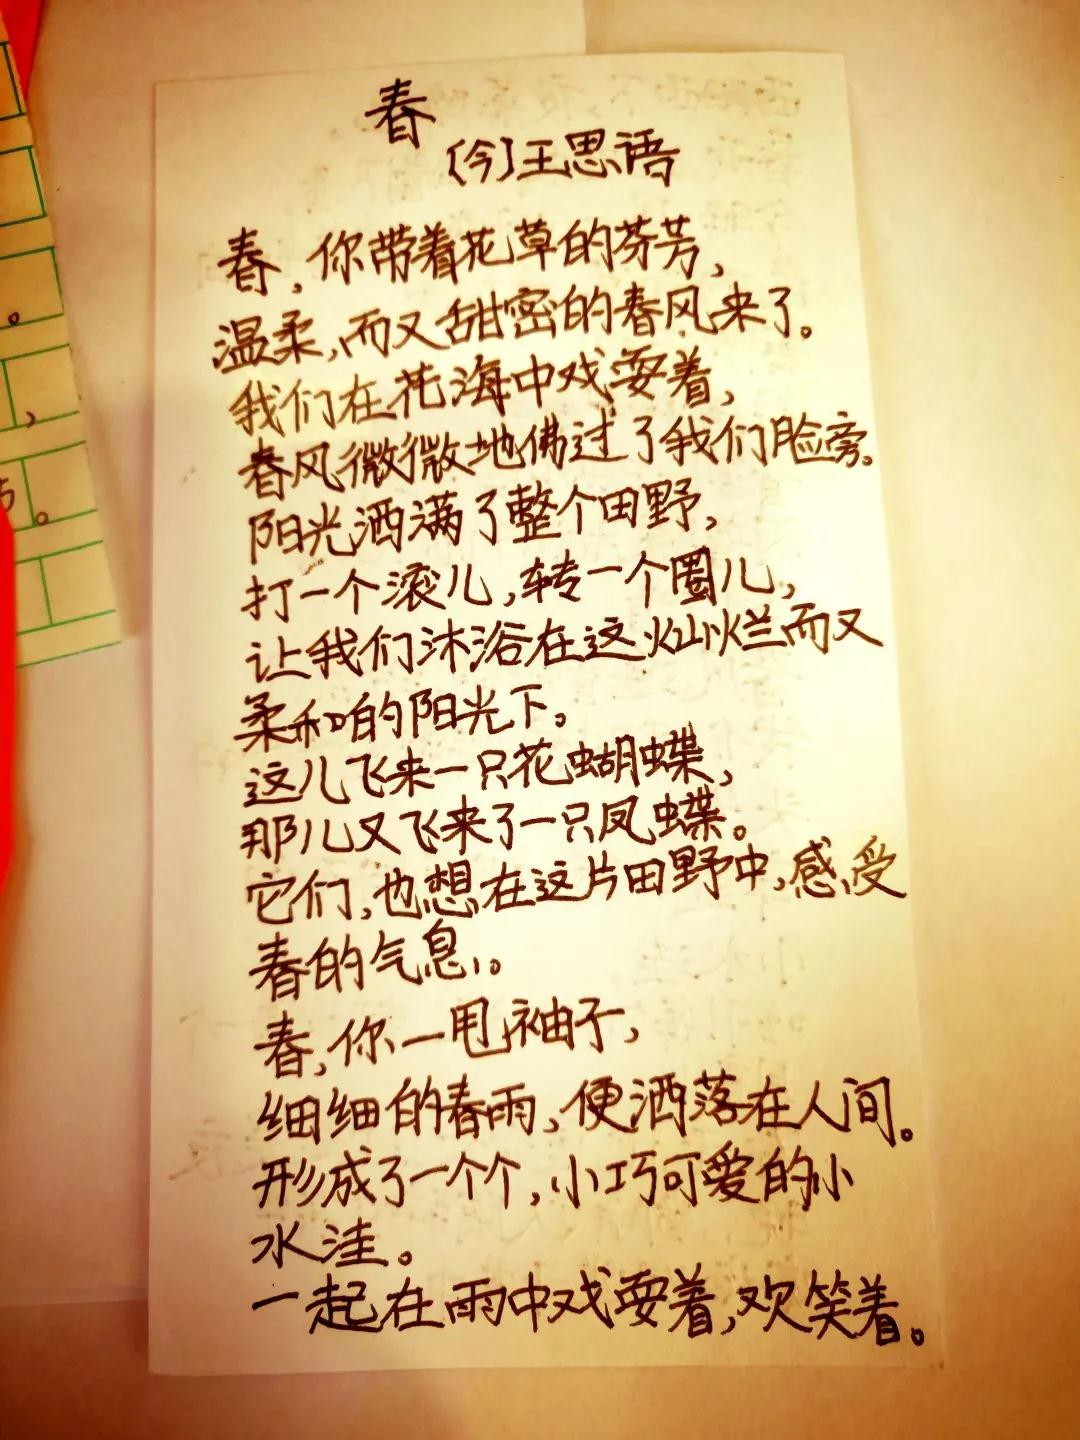 春
〔今〕王思语
春，你带着花草的芬芳，
温柔，而又甜密的春风来了。
我们在花海中戏耍着，
春风微微地佛过了我们脸旁。
阳光洒满了整个田野，
打一个滚儿，转一个圈儿，
让我们沐浴在这灿烂而又
柔和的阳光下。
这儿飞来一只花蝴蝶，
那儿又飞来了一只凤蝶。
它们，也想在这片田野中，感受
春的气息。
春，你一甩袖子，
细细的春雨，便洒落在人间。
形成了一个个，小巧可爱的小
水洼。
一起在雨中戏耍着，欢笑着。